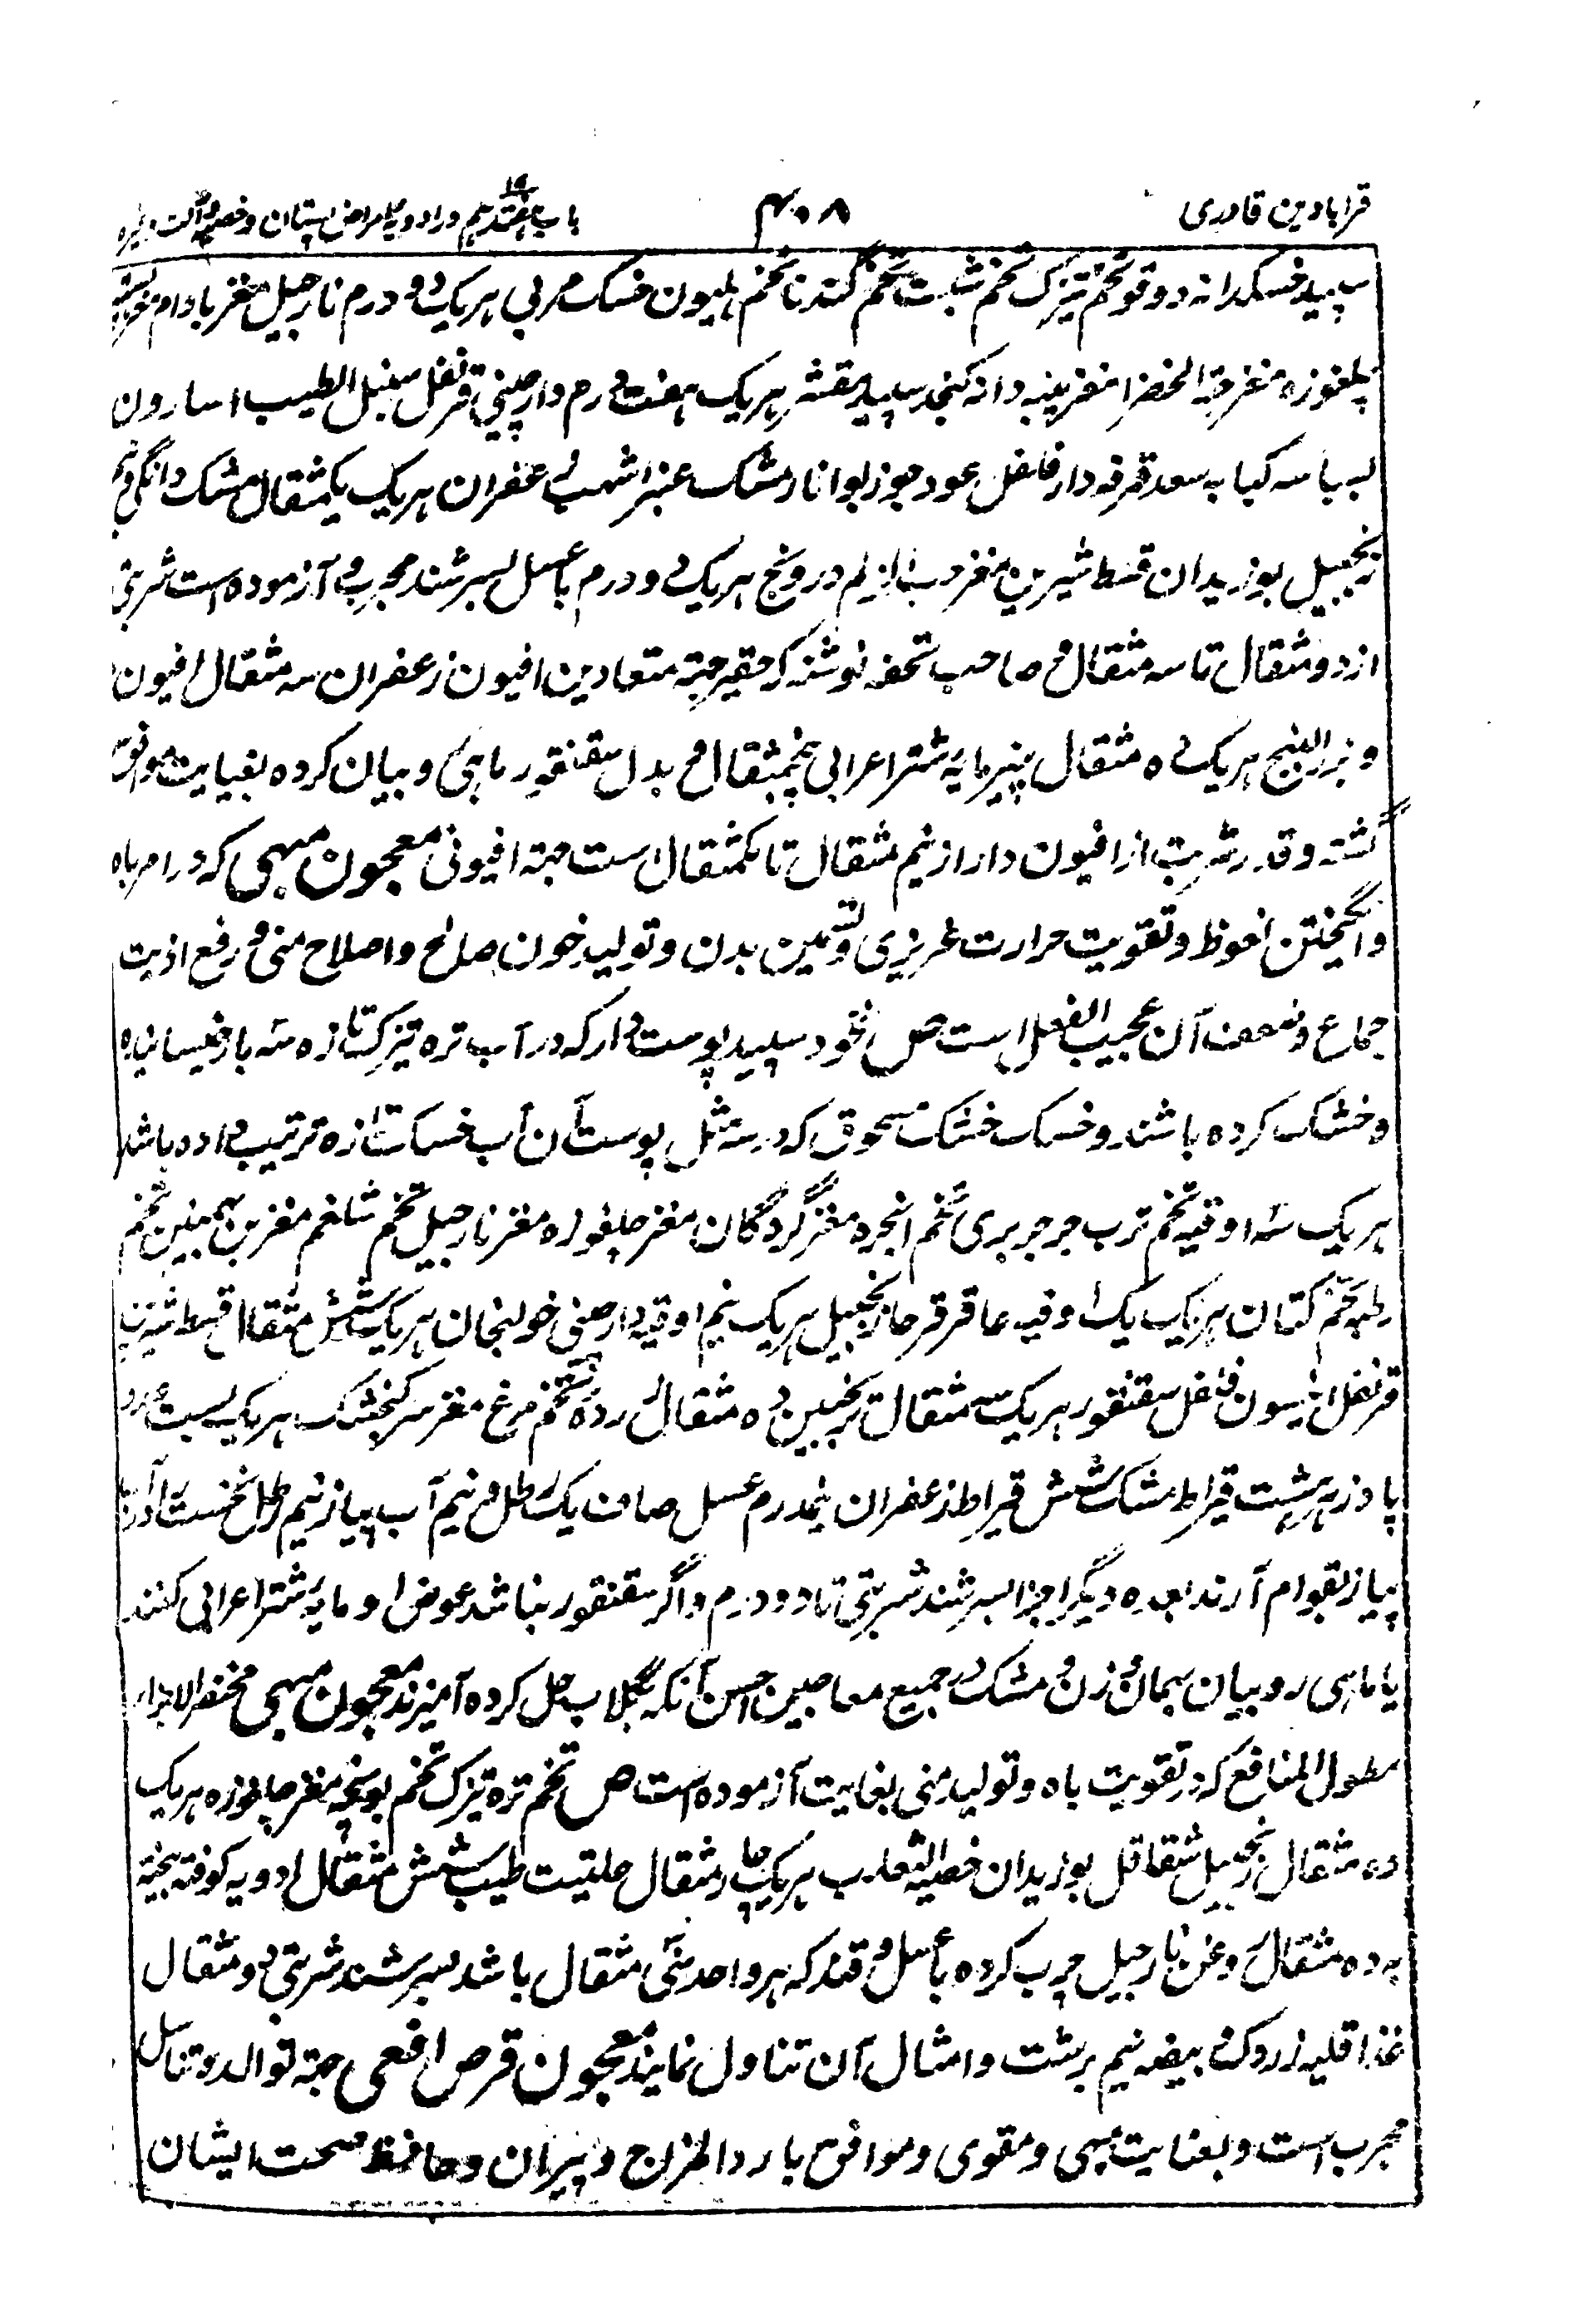 قرابادین قادری
۴۰۸
باب هفتدهم در ادویه امراض پستان و خصیه و آلت و غیره
سپید خسکدانه دوقو تخم تیزک تخم شبت تخم گندنا تخم هلیون خسک مربی هریک دو درم نارجیل مغز بادام مغز پسته
چلغوزه مغز حبة الخضرا مغز پنبه دانه کنجد سپید مقشر هریک هفت درم دارچینی قرنفل سنبل الطیب اسارون
بسباسه کبابه سعد قرفه دارفلفل عود جوزبوا نارمشک عنبر اشهب زعفران هریک یکمثقال مشک دانگی و نیم
زنجبیل بوزیدان قسط شیرین مغز حب الزلم درونج هریک دو درم با عسل بسرشند مجرب و آزموده است شربتی
از دو مثقال تا سه مثقال و صاحب تحفه نوشته که حقیر جهة متعادین افیون زعفران سه مثقال افیون
و بزرالبنج هریک ده مثقال پنیرمایه شتر اعرابی پنجمثقال و بدل سقنقور ماهی روبیان کرده بغایت موافق
گشته و قدر شربت از افیون دار از نیم مثقال تا یکمثقال است جهة افیونی معجون مبهی که در امر باه
و انگیختن نعوظ و تقویت حرارت غریزی و تسمین بدن و تولید خون صالح و اصلاح منی و رفع اذیت
جماع و ضعف آن عجیب الفعل است ص نخود سپید پوست دار که در آب تره تیزک تازه سه بار خیسانیده
و خشک کرده باشند و خسک خشک مسحوق که در سه مثل پوست آن آب خسک تازه ترتیب داده باشند
هریک سه اوقیه تخم ترب جرجر بری تخم انجره مغز گردگان مغز چلغوزه مغز نارجیل تخم شلغم مغز بن بهمنین تخم
رطبه تخم کتان هریک یک اوقیه عاقرقرحا زنجبیل هریک نیم اوقیه دارچینی خولنجان هریک شش مثقال قسط شیرین
قرنفل انیسون فلفل سقنقور هریک سه مثقال ترنجبین ده مثقال زرده تخم مرغ مغز سر کنجشک هریک بست عدد
پادزهر هشت قیراط مشک شش قیراط زعفران نیمدرم عسل صاف یک رطل و نیم آب پیاز نیم رطل نخست آب
پیاز بقوام آرند بعده دیگر اجزا بسرشند شربتی تا دو درم و اگر سقنقور نباشد عوض او مایه شتر اعرابی کنند
یا ماهی روبیان بهمان وزن و مشک در جمیع معاجین احسن آنکه بگلاب حل کرده آمیزند معجون مبهی مختصر الاجزاء
مطول المنافع که در تقویت باه و تولید منی بغایت آزموده است ص تخم تره تیزک تخم یونجه مغز چلغوزه هریک
ده مثقال زنجبیل شقاقل بوزیدان خصیة الثعلب هریک چهار مثقال حلتیت طیب شش مثقال ادویه کوفته بیخته
به ده مثقال روغن نارجیل چرب کرده با عسل و قند که هر واحد سی مثقال باشد بسرشند شربتی دو مثقال
غذا قلیه زردک و بیضه نیم برشت و امثال آن تناول نمایند معجون قرص افعی جهة توالد و تناسل
مجرب است و بغایت مبهی و مقوی و موافق بارد المزاج و پیران و حافظ صحت ایشان